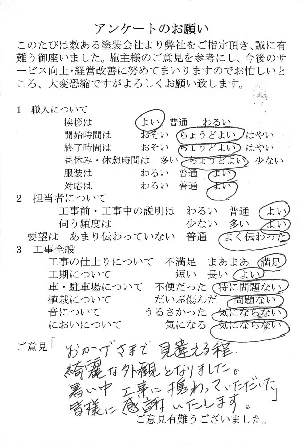 アンケートのお願い
このたびは数ある塗装会社より弊社をご指定頂き、誠に有
難う御座いました。施主様のご意見を参考にし、今後のサ
ービス向上・経営改善に努めてまいりますのでお忙しいと
ころ、大変恐縮ですがよろしくお願い致します。
1 職人について
挨拶は よい 普通 わるい
開始時間は おそい ちょうどよい はやい
終了時間は おそい ちょうどよい はやい
昼休み・休憩時間は 多い ちょうどよい 少ない
服装は わるい 普通 よい
対応は わるい 普通 よい
2 担当者について
工事前・工事中の説明は わるい 普通 よい
伺う頻度は 少ない 多い よい
要望は あまり伝わっていない 普通 よく伝わった
3 工事全般
工事の仕上りについて 不満足 まあまあ 満足
工期について 短い 長い よい
車・駐車場について 不便だった 特に問題ない
植栽について だいぶ傷んだ 問題ない
音について うるさかった 気にならない
においについて 気になる 気にならない
ご意見「おかげさまで 見違える程
綺麗な外観となりました。
暑い中 工事に携わっていただいた
皆様に感謝いたします。
ご意見有難うございました。